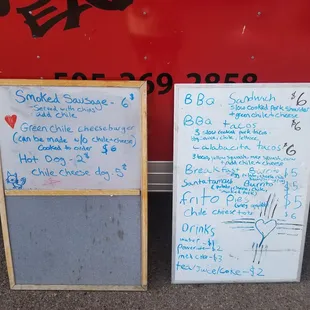 505 269 2858
Smoked Sausage - 6$
Served with chips
add chile
Green chile cheeseburger
(can be made w/o chile+cheese)
cooked to order $8
Hot Dog - 2$
chile cheese dog 5$
BBQ Sandwich $6
slow cooked pork shoulder
+ green chile + cheese
BBQ tacos $6
slow cooked pork
Calabacita tacos $6
3 tacos,
+ add chile + cheese
Breakfast Burrito $5
Burrito $5
Frito Pies $5
chile cheese fries $6
Drinks
water - $1
tea/juice/coke - $2